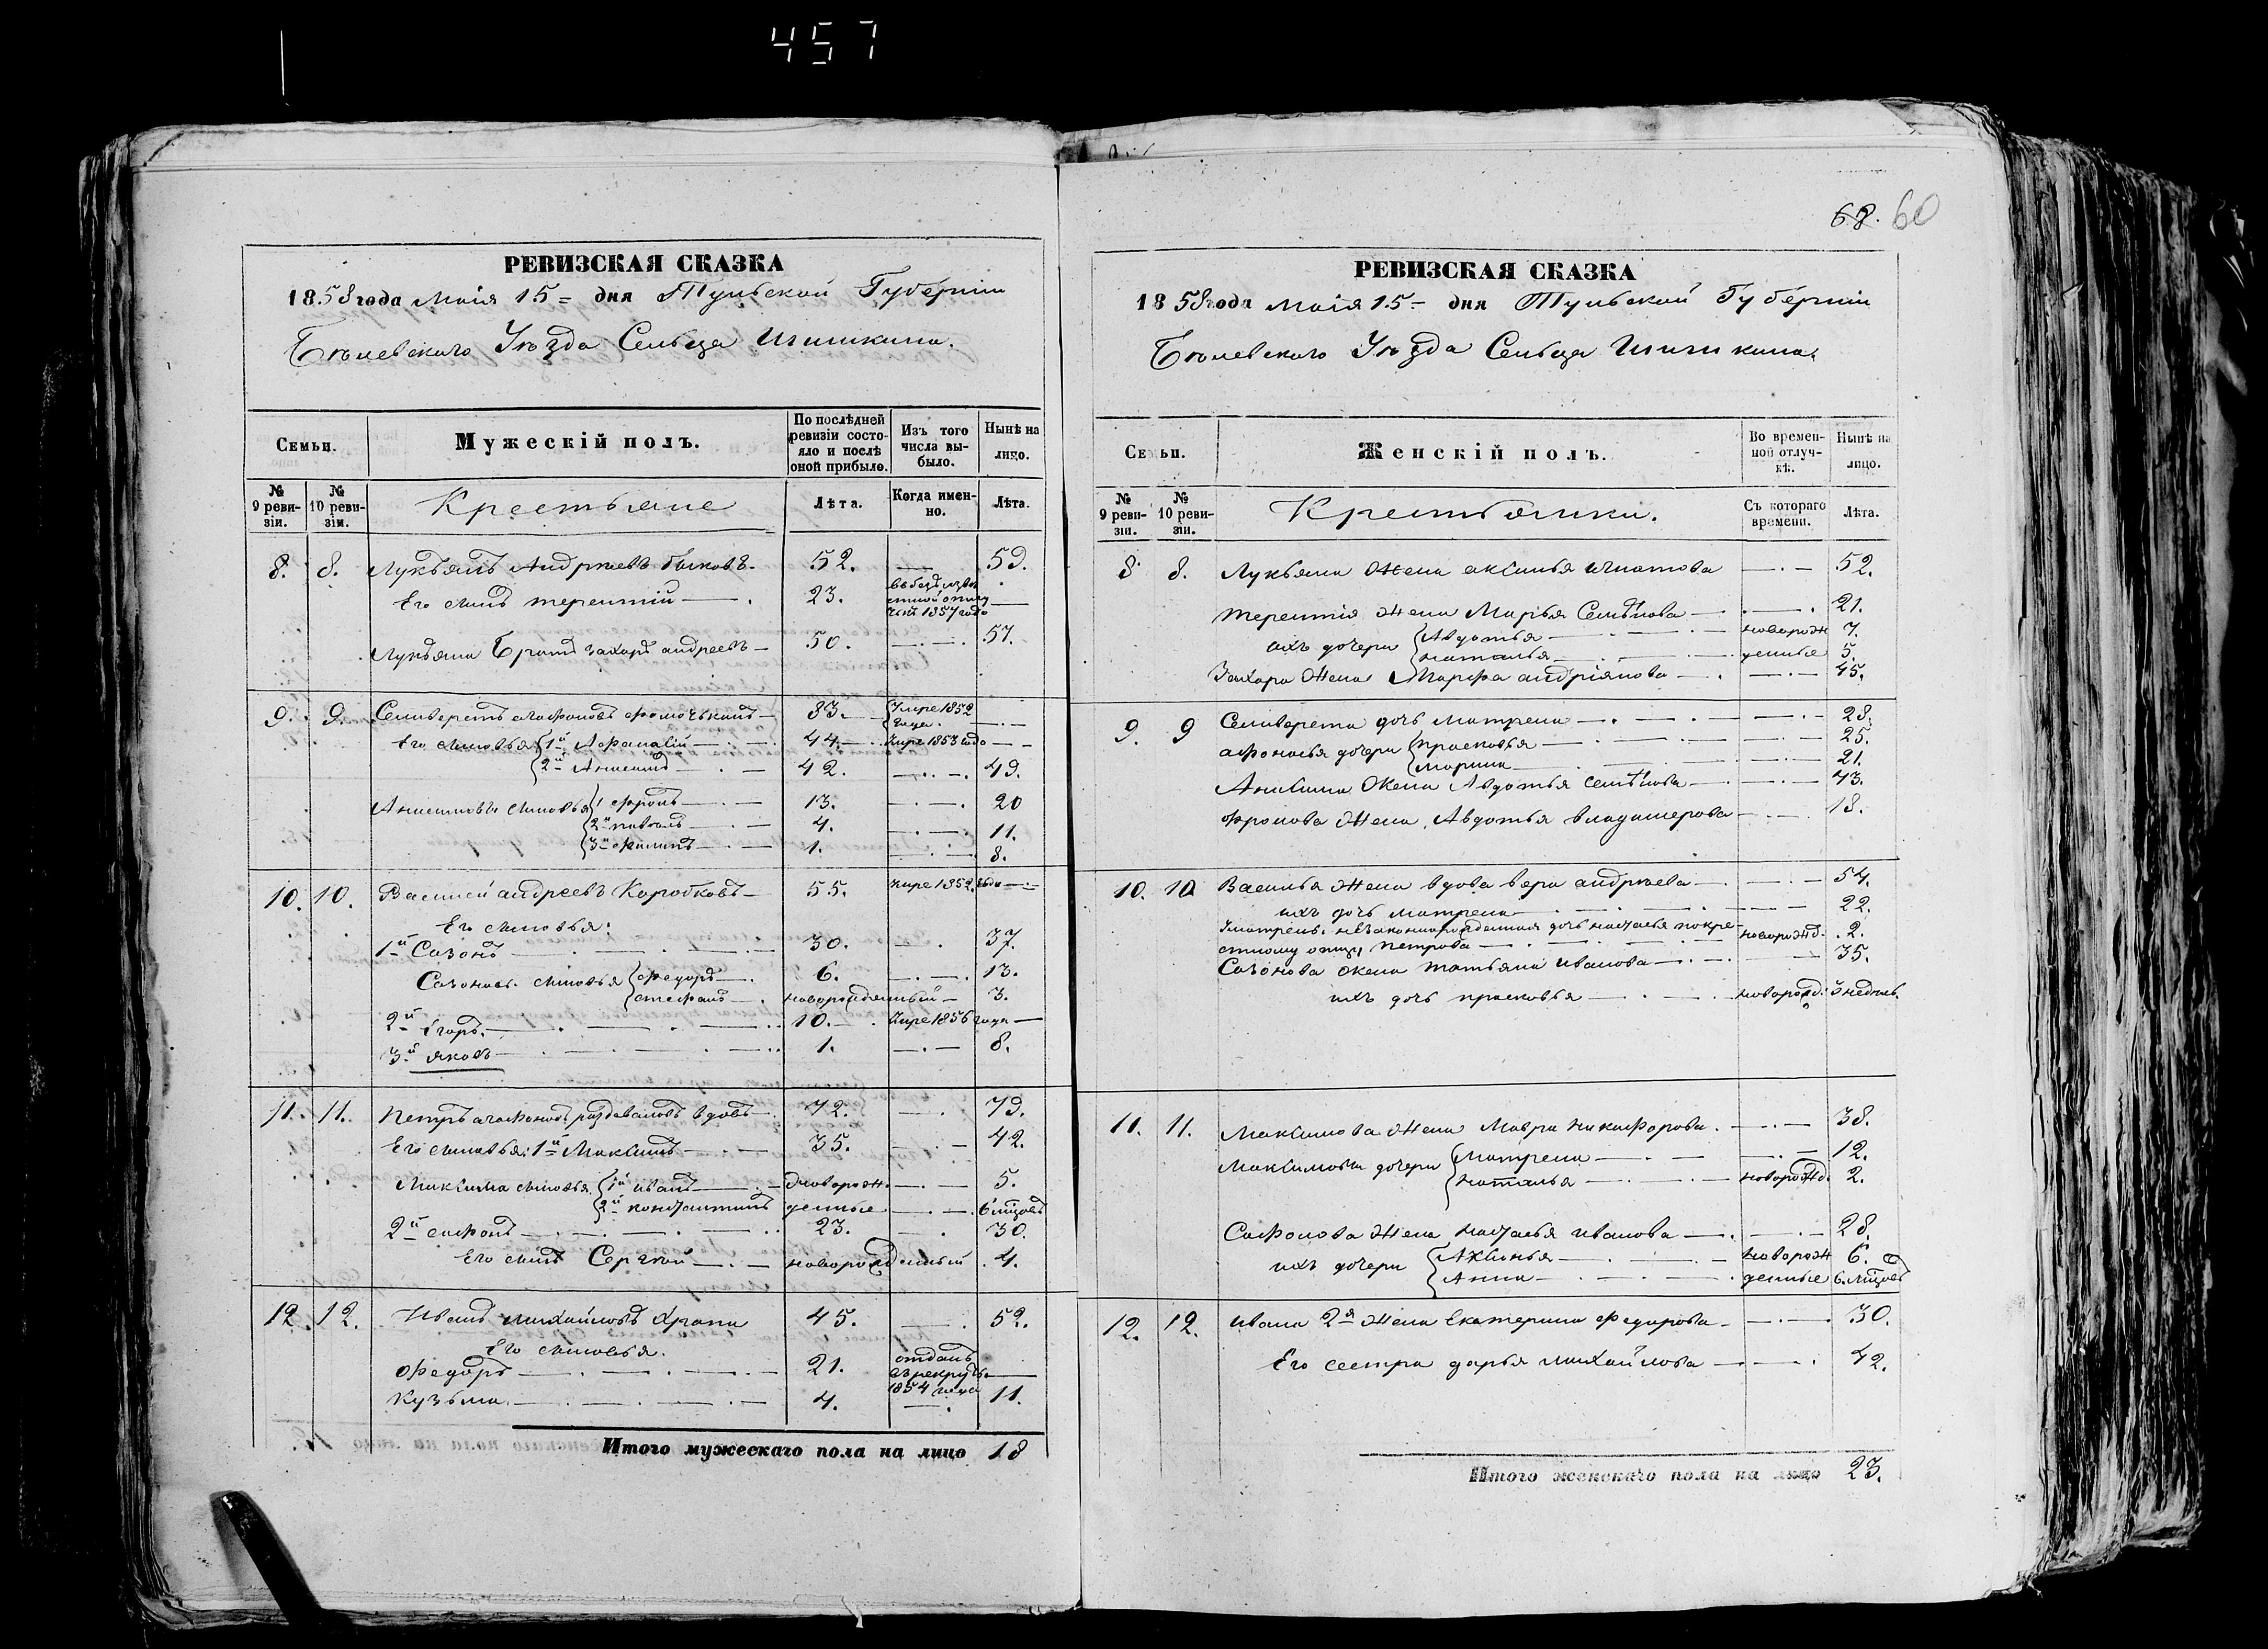 457
РЕВИЗСКАЯ СКАЗКА
1858 года маія 15 дня Тульской Губерніи
Бѣлевскаго Уѣзда Сельца Шишкина.
Семьи.
Мужескій полъ.
По послѣдней ревизіи состояло и послѣ оной прибыло.
Изъ того числа выбыло.
Нынѣ на лицо.
№ 9 ревизіи.
№ 10 ревизіи.
Крестьяне
Лѣта.
Когда именно.
Лѣта.
8. 8. Лукьянъ Андрѣевъ 52. 59.
Его сынъ терентій 23. въ безъизвѣстной отлучкѣ 1857 года
Лукьяна Братъ захаръ андреевъ 50. 57.
9. 9. Селиверстъ агафоновъ 83. Умре 1852 года.
Его сыновья 1й Афанасій 44. Умре 1853 года
2й Анисимъ 42. 49.
Анисимовы сыновья 1 фролъ 13. 20
2й павелъ 4. 11.
3й филипъ 1. 8.
10. 10. Василей андреевъ Коробковъ 55. Умре 1852 года
Его сыновья:
1й Сазонъ 30. 37.
Сазоновы сыновья федоръ 6. 13.
стефанъ новорожденный 3.
2й Егоръ 10. Умре 1856 года
3й яковъ 1. 8.
11. 11. Петръ агафоновъ вдовъ 72. 79.
Его сыновья: 1й Максимъ 35. 42.
Максима сыновья 1й иванъ новорож 5.
2й константинъ денные 6 мѣсцовъ
2й сафонъ 23. 30.
Его сынъ Сергѣй новорожденный 4.
12. 12. Иванъ михайловъ Храпа 45. 52.
Его сыновья.
Федоръ 21. отданъ въ рекруты 1854 года
Кузьма 4. 11.
Итого мужескаго пола на лицо 18
68. 60
РЕВИЗСКАЯ СКАЗКА
1858 года маія 15 дня Тульской Губерніи
Бѣлевскаго Уѣзда Сельца Шишкина.
Семьи.
Женскій полъ.
Во временной отлучкѣ.
Нынѣ на лицо.
№ 9 ревизіи.
№ 10 ревизіи.
Крестьянки.
Съ котораго времени.
Лѣта.
8 8. Лукьяна Жена аксинья игнатова 52.
терентія жена Марья Семѣнова 21.
ихъ дочери Авдотья новорож 7.
наталья денные 5.
Захара Жена Марфа андріянова 45.
9. 9 Селиверста дочь матрена 28.
афонасья дочери прасковья 25.
марина 21.
Анисима Жена Авдотья семѣнова 43.
Фролова Жена, Авдотья владимерова 18.
10. 10 Василья Жена вдова вера андрѣева 54.
ихъ дочь матрена 22.
Уматрены незаконнорожденная дочь настасья покре-
стному отцу петрова новорожд. 2.
Сазонова жена татьяна иванова 35.
ихъ дочь прасковья новорожд. 3 недѣль.
11. 11. Максимова Жена Мавра никифорова. 38.
Максимовы дочери Матрена 12.
наталья новорожд. 2.
Сафонова Жена настасья иванова 28.
ихъ дочери Аксинья новорож 6.
Анна денные 6 мѣсцовъ
12. 12. ивана 2я Жена Екатерина Федорова 30.
Его сестра дарья михайлова 42.
Итого женскаго пола на лицо 23.